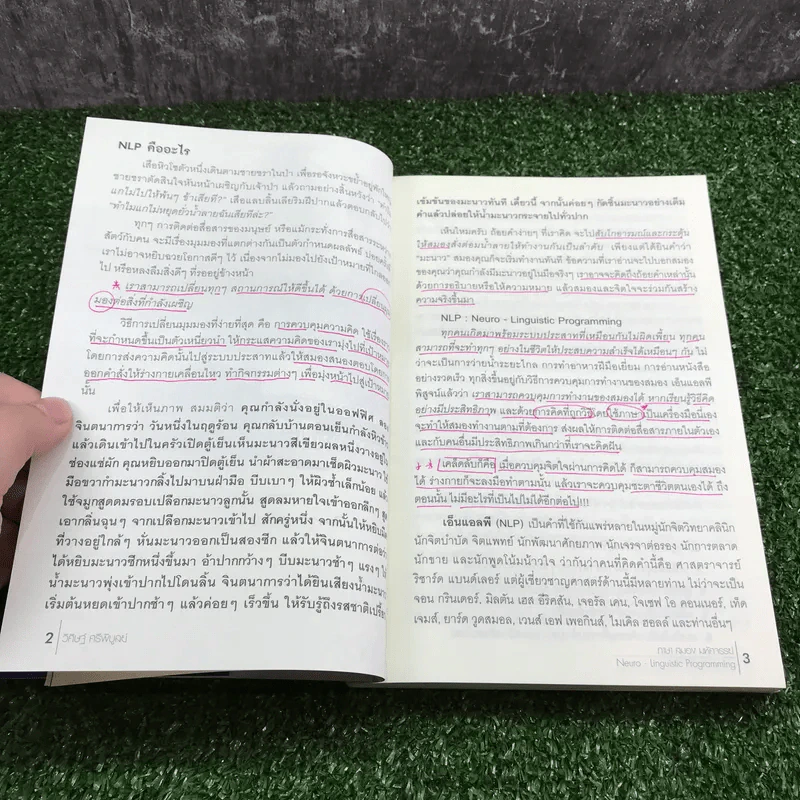 NLP คืออะไร
เสือหิวโซตัวหนึ่งเดินตามชายชราในป่า เพื่อรอจังหวะขย้ำ
ชายชราตัดสินใจหันหน้าเผชิญกับเจ้าป่า แล้วถามอย่างสิ้นหวังว่า
แกไม่ไปให้พ้นๆ ข้าเสียที?" เสือแลบลิ้นเลียริมฝีปากแล้วตอบกลับ
"ทำไมแกไม่หยุดยั่วน้ำลายฉันเสียทีล่ะ?"
ทุกๆ การติดต่อสื่อสารของมนุษย์ หรือแม้กระทั่งการสื่อสารระหว่าง
สัตว์กับคน จะมีเรื่องมุมมองที่แตกต่างกันเป็นตัวกำหนดผลลัพธ์ บ่อยครั้งที่
เราไม่อาจหยิบฉวยโอกาสดีๆ ไว้ เนื่องจากไม่มองไปยังเป้าหมายที่ไกล
ไป หรือหลงลืมสิ่งดีๆ ที่รออยู่ข้างหน้า
เราสามารถเปลี่ยนทุกๆ สถานการณ์ให้ดีขึ้นได้ ด้วยการเปลี่ยน
มองต่อสิ่งที่กำลังเผชิญ
วิธีการเปลี่ยนมุมมองที่ง่ายที่สุด คือ การควบคุมความคิด ใช้เรื่อง
ที่จะกำหนดขึ้นเป็นตัวเหนี่ยวนำ ให้กระแสความคิดของเรามุ่งไปที่เป้าหมาย
โดยการส่งความคิดนั้นไปสู่ระบบประสาทแล้วให้สมองสนองตอบโดยการ
ออกคำสั่งให้ร่างกายเคลื่อนไหว ทำกิจกรรมต่างๆ เพื่อมุ่งหน้าไปสู่เป้าหมาย
นั้น
เพื่อให้เห็นภาพ สมมติว่า คุณกำลังนั่งอยู่ในออฟฟิศ ลอง
จินตนาการว่า วันหนึ่งในฤดูร้อน คุณกลับบ้านตอนเย็นกำลังหิวข้าว
แล้วเดินเข้าไปในครัวเปิดตู้เย็นเห็นมะนาวสีเขียวผลหนึ่งวางอยู่ใน
ช่องแช่ผัก คุณหยิบออกมาปิดตู้เย็น นำผ้าสะอาดมาเช็ดผิวมะนาว ใช้
มือขวากำมะนาวกลิ้งไปมาบนฝ่ามือ บีบเบาๆ ให้ผิวช้ำเล็กน้อย แล้ว
ใช้จมูกสูดดมรอบเปลือกมะนาวลูกนั้น สูดลมหายใจเข้าออกลึกๆ สูด
เอากลิ่นฉุนๆ จากเปลือกมะนาวเข้าไป สักครู่หนึ่ง จากนั้นให้หยิบมีด
ที่วางอยู่ใกล้ๆ หั่นมะนาวออกเป็นสองซีก แล้วให้จินตนาการต่อว่า
ได้หยิบมะนาวซีกหนึ่งขึ้นมา อ้าปากกว้างๆ บีบมะนาวช้าๆ แรงๆ ให้
น้ำมะนาวพุ่งเข้าปากไปโดนลิ้น จินตนาการว่าได้ยินเสียงน้ำมะนาว
เริ่มต้นหยดเข้าปากช้าๆ แล้วค่อยๆ เร็วขึ้น ให้รับรู้ถึงรสชาติเปรี้ยว
2 วิศิษฐ์ ศรีพิบูลย์
เข้มข้นของมะนาวทันที เดี๋ยวนี้ จากนั้นค่อยๆ กัดชิ้นมะนาวอย่างเต็ม
คำแล้วปล่อยให้น้ำมะนาวกระจายไปทั่วปาก
เห็นไหมครับ ถ้อยคำง่ายๆ ที่เราคิด จะไปสับไกอารมณ์และกระตุ้น
ให้สมองสั่งต่อมน้ำลายให้ทำงานกันเป็นลำดับ เพียงแต่ได้ยินคำว่า
"มะนาว" สมองคุณก็จะเริ่มทำงานทันที ข้อความที่เราอ่านจะไปบอกสมอง
ของคุณว่าคุณกำลังมีมะนาวอยู่ในมือจริงๆ เราอาจจะคิดถึงถ้อยคำเหล่านั้น
ด้วยการอธิบายหรือให้ความหมาย แล้วสมองและจิตใจจะร่วมกันสร้าง
ความจริงขึ้นมา
NLP : Neuro - Linguistic Programming
ทุกคนเกิดมาพร้อมระบบประสาทที่เหมือนกันไม่ผิดเพี้ยน ทุกคน
สามารถที่จะทำทุกๆ อย่างในชีวิตให้ประสบความสำเร็จได้เหมือนๆ กัน ไม่
ว่าจะเป็นการว่ายน้ำระยะไกล การทำอาหารฝีมือเยี่ยม การอ่านหนังสือ
อย่างรวดเร็ว ทุกสิ่งขึ้นอยู่กับวิธีการควบคุมการทำงานของสมอง เอ็นแอลพี
พิสูจน์แล้วว่า เราสามารถควบคุมการทำงานของสมองได้ หากเรียนรู้วิธีคิด
อย่างมีประสิทธิภาพ และด้วยการคิดที่ถูกวิธีโดยใช้ภาษาเป็นเครื่องมือนี่เอง
จะทำให้สมองทำงานตามที่ต้องการ ส่งผลให้การติดต่อสื่อสารภายในตัวเอง
และกับคนอื่นมีประสิทธิภาพเกินกว่าที่เราจะคิดฝัน
เคล็ดลับก็คือ เมื่อควบคุมจิตใจผ่านการคิดได้ ก็สามารถควบคุมสมอง
ได้ ร่างกายก็จะลงมือทำตามนั้น แล้วเราจะควบคุมชะตาชีวิตตนเองได้ ถึง
ตอนนั้น ไม่มีอะไรที่เป็นไปไม่ได้อีกต่อไป!!!
เอ็นแอลพี (NLP) เป็นคำที่ใช้กันแพร่หลายในหมู่นักจิตวิทยาคลินิก
นักจิตบำบัด จิตแพทย์ นักพัฒนาศักยภาพ นักเจรจาต่อรอง นักการตลาด
นักขาย และนักพูดโน้มน้าวใจ ว่ากันว่าคนที่คิดคำนี้คือ ศาสตราจารย์
ริชาร์ด แบนด์เลอร์ แต่ผู้เชี่ยวชาญศาสตร์ด้านนี้มีหลายท่าน ไม่ว่าจะเป็น
จอน กรินเดอร์, มิลตัน เฮส อีริคสัน, เจอรัล เคน, โจเซฟ โอ คอนเนอร์, เท็ด
เจมส์, ยาร์ด วูดสมอล, เวนส์ เอฟ เพอกินส์, ไมเคิล ฮอลล์ และท่านอื่นๆ
ภาษา สมอง มหัศจรรย์
Neuro - Linguistic Programming 3